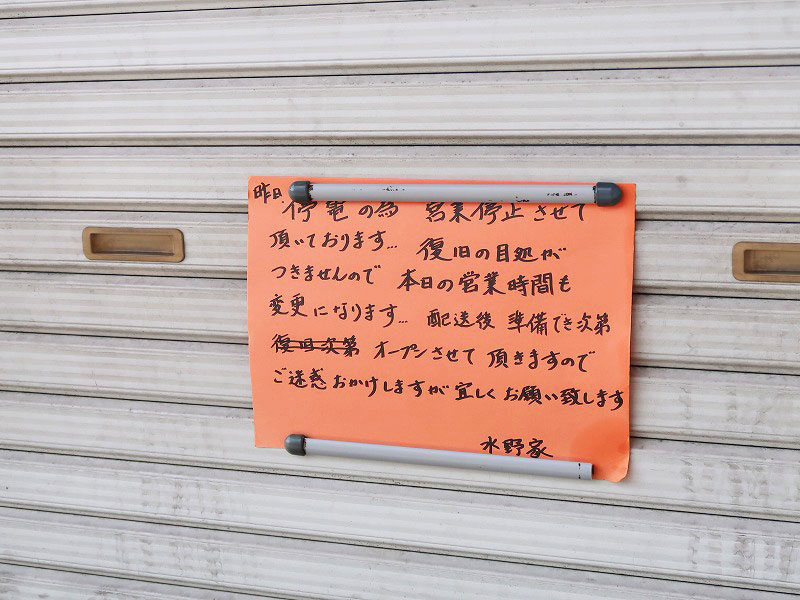 昨日
停電の為 営業停止させて
頂いております… 復旧の目処が
つきませんので 本日の営業時間も
変更になります… 配送後 準備でき次第
復旧次第 オープンさせて頂きますので
ご迷惑おかけしますが宜しくお願い致します
水野家